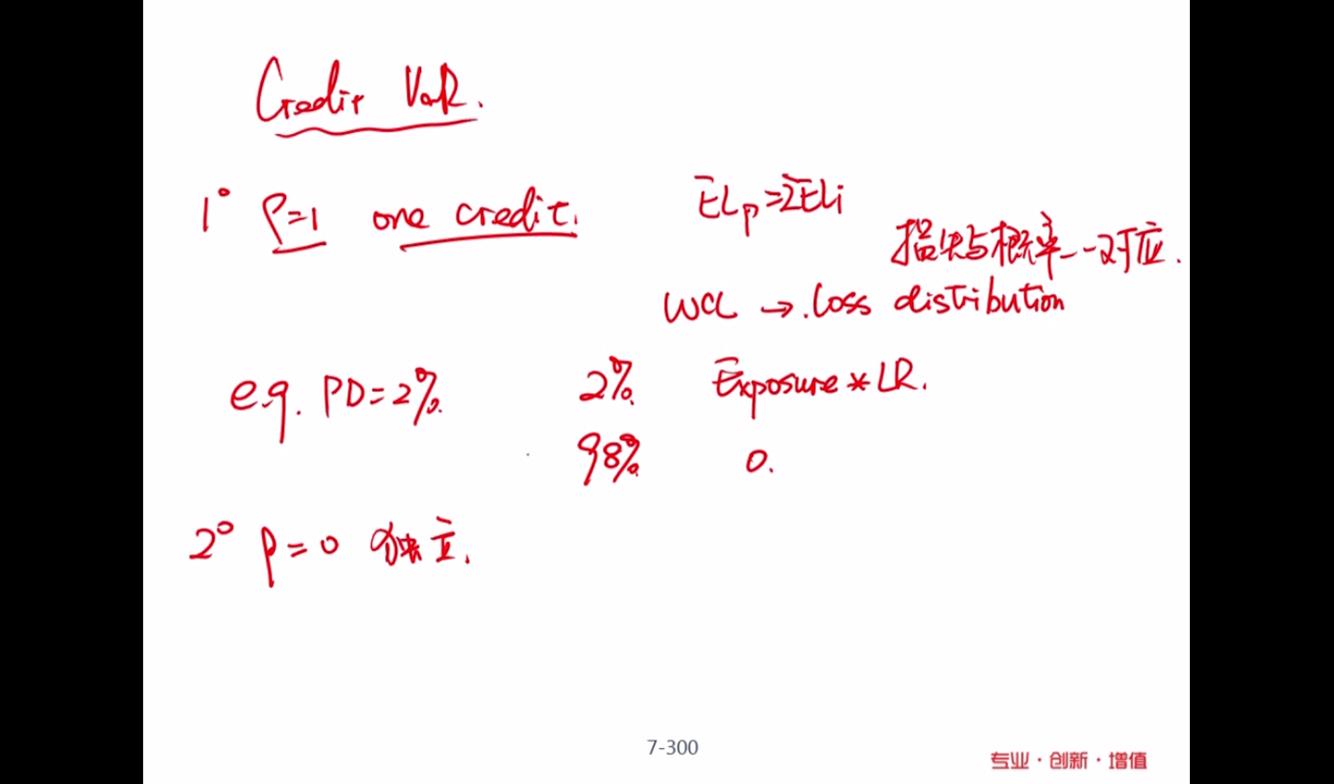 Credit VaR.
1° ρ=1 one credit.
ELp=ΣELi
损失与概率一一对应.
WCL → Loss distribution
e.g. PD=2%. 2% Exposure * LR.
98% 0.
2° ρ=0 独立.
7-300
专业·创新·增值